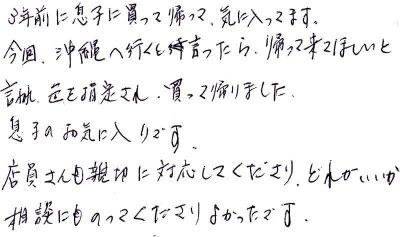 3年前に息子に買って帰って、気に入ってます。
今回、沖縄へ行くと言ったら、帰って来てほしいと
言われ、色を指定され、買って帰りました。
息子のお気に入りです。
店員さんも親切に対応してくださり、どれがいいか
相談にものってくださりよかったです。